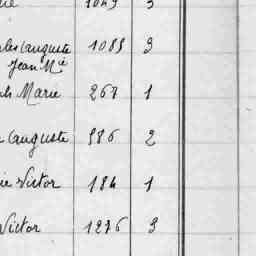 1049 3
Auguste 1088 3
Jean Mie
Marie 267 1
Auguste 886 2
Victor 184 1
Victor 1276 3